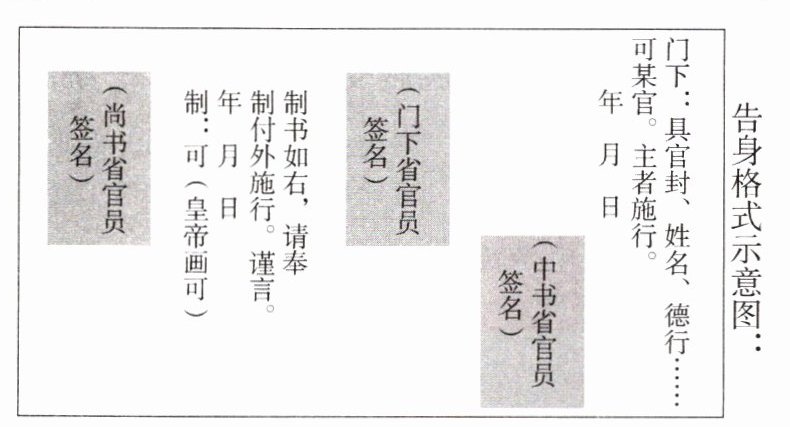 告身格式示意图：
门下：具官封、姓名、德行……
可某官。主者施行。
年 月 日
（中书省官员
签名）
（门下省官员
签名）
制书如右，请奉
制付外施行。谨言。
年 月 日
制：可（皇帝画可）
（尚书省官员
签名）